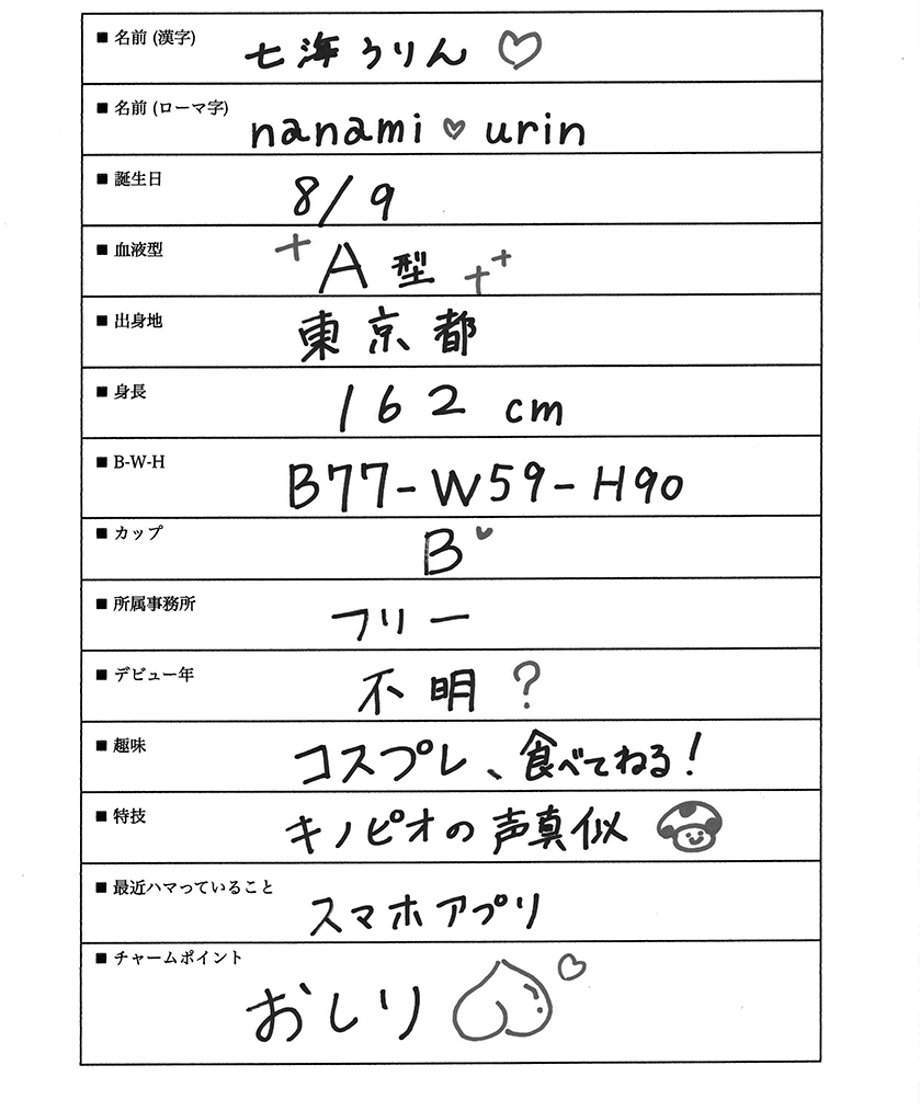 ■ 名前 (漢字)
七海うりん♡
■ 名前 (ローマ字)
nanami♡urin
■ 誕生日
8/9
■ 血液型
A型
■ 出身地
東京都
■ 身長
162 cm
■ B-W-H
B77-W59-H90
■ カップ
B
■ 所属事務所
フリー
■ デビュー年
不明?
■ 趣味
コスプレ、食べてねる!
■ 特技
キノピオの声真似
■ 最近ハマっていること
スマホアプリ
■ チャームポイント
おしり